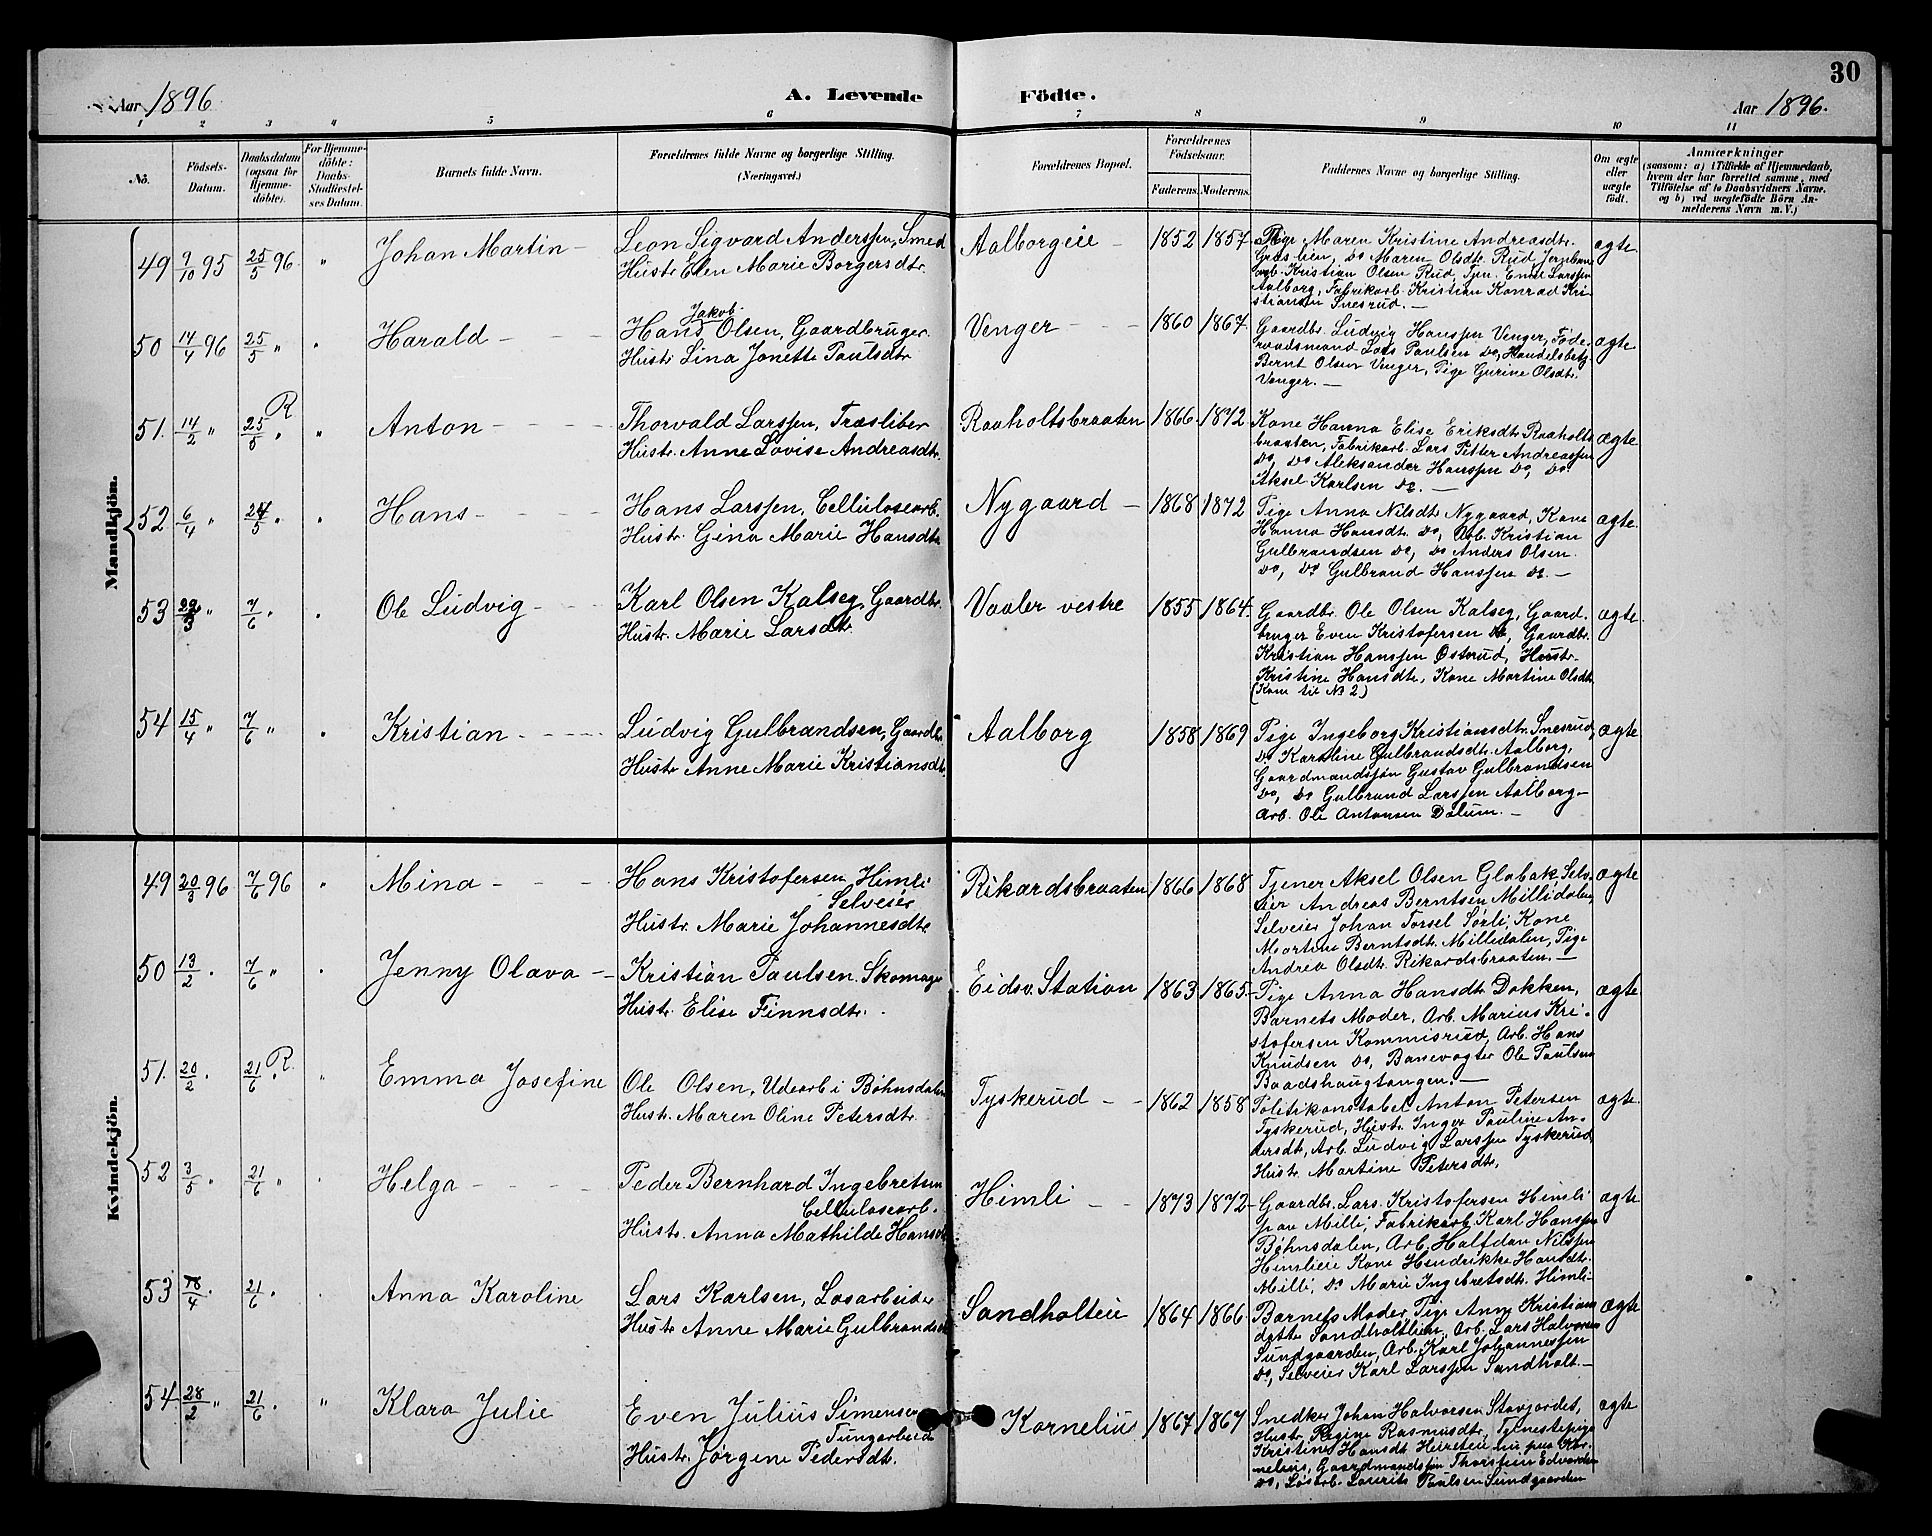 30
Aar 1896.
A. Levende Födte.
Aar 1896.
1 2 3 4 5 6 7 8 9 10 11
No.
Födsels-
Datum.
Daabsdatum
(ogsaa for
Hjemme-
döbte).
For Hjemme-
döbte:
Daabs-
Stadfæstel-
ses Datum.
Barnets fulde Navn.
Forældrenes fulde Navne og borgerlige Stilling.
(Næringsvei.)
Forældrenes Bopæl.
Forældrenes
Födselsaar.
Faderens. Moderens.
Faddernes Navne og borgerlige Stilling.
Om ægte
eller
uægte
födt.
Anmærkninger
(saasom: a) i Tilfælde af Hjemmedaab,
hvem der har forrettet samme, med
Tilföielse af to Daabsvidners Navne.
og b) ved uægtefödte Börn An-
melderens Navn m. V.)
Mandkjön.
49 9/10 95 25/5 96 " Johan Martin –
Leon Sigvard Anderssen, Smed
Hustr. Elen Marie Borgersdtr.
Aalborgeie – 1852 1857
Pige Maren Kristine Andreasdtr.
Græslien, Do Maren Olsdtr. Rud, Jernban
arb. Kristian Olsen Rud, Tjen. Emil Larssen
Aalborg, Fabrikarb. Kristian Konrad Kri-
stiansen Smesrud. –
ægte.
50 14/4 96 25/5 " " Harald –
Jakob
Hans Olsen, Gaardbruger
Hustr. Lina Jonette Paulsdtr.
Venger – – 1860 1867.
Gaardbr. Ludvig Hanssen Venger, Föde-
raadsmand Lars Paulsen Do, Handelsbetj.
Bernt Olsen Venger, Pige Gurine Olsdtr.
Venger. –
ægte.
51. 14/2 " 25/5 " R " Anton –
Thorvald Larssen, Træsliber
Hustr. Anne Lovise Andreasdtr.
Raaholtsbraaten 1866 1872.
Kone Hanna Elise Eriksdtr. Raaholts
braaten, Fabrikarb. Lars Petter Andreassen
Do, Do Aleksander Hanssen Do, Do
Aksel Karlsen Do. –
ægte
52 6/4 " 24/5 " " Hans –
Hans Larssen, Cellulosearb.
Hustr. Gina Marie Hansdtr.
Nygaard – 1868 1872
Pige Anna Nilsdtr Nygaard, Kone
Hanna Hansdtr. Do, Arb. Kristian
Gulbrandsen Do, Do Anders Olsen
Do, Do Gulbrand Hanssen Do. –
ægte.
53 /3 " 7/6 " " Ole Ludvig –
Karl Olsen Kalseg, Gaardbr.
Hustr. Marie Larsdtr.
Vaaler vestre 1855 1864.
Gaardbr. Ole Olsen Kalseg, Gaard-
bruger Even Kristofersen Do, Gaardbr.
Kristian Hanssen Østerud, Hustr.
Kristine Hansdtr, Kone Martine Olsdtr
(Kone til No 2)
ægte.
54 15/4 " 7/6 " " Kristian –
Ludvig Gulbrandsen, Gaardbr.
Hustr. Anne Marie Kristiansdtr.
Aalborg 1858 1869
Pige Ingeborg Kristiansdtr. Smesrud,
Do Karoline Gulbrandsdtr. Aalborg,
Gaardmandssøn Gustav Gulbrandsen
Do, Do Gulbrand Larssen Aalborg –
Arb. Ole Antonsen Dalum. –
ægte
Kvindekjön.
49 20/3 96 7/6 96 " Mina –
Hans Kristofersen Himli
Selveier
Hustr. Marie Johannesdtr.
Rikardsbraaten 1866 1868
Tjener Aksel Olsen Globak, Selv-
eier Andreas Berntsen Millidalen,
Selveier Johan Torsel Sörli, Kone
Martine Berntsdtr. Millidalen, Pige
Andrea Olsdtr. Rikardsbraaten. –
ægte
50 13/2 . 7/6 " . Jenny Olava –
Kristian Paulsen. Skomager
Hustr. Elise Finnsdtr.
Eidsv. Station 1863 1865
Pige Anna Hansdtr. Dokken,
Barnets Moder, Arb. Marius Kri-
stofersen Kommisrud, Arb. Hans
Knudsen Do, Banevogter Ole Paulsen
Baadshaugtangen. –
ægte
51. 20/2 . 21/6 . R " Emma Josefine
Ole Olsen, Udearb i Bøhnsdalen
Hustr. Maren Oline Petersdtr.
Tyskerud – – 1862 1858
Politikonstabel Anton Petersen
Tyskerud, Hustr. Inger Pauline An-
dersdtr, Arb. Ludvig Larssen Tyskerud,
Hustr. Martine Petersdtr.
ægte.
52 3/5 " 21/6 " . Helga –
Peder Bernhard Ingebretsen
Cellulosearb.
Hustr. Anna Mathilde Hansdtr.
Himli – – 1873 1872
Gaardbr. Lars Kristofersen Himli
paa Milli, Fabrikarb. Karl Hanssen
Bøhnsdalen, Arb. Halfdan Nilssen
Himlieie Kone Hendrikke Hansdtr.
Milli, Do Marie Ingebretsdtr. Himli –
ægte
53 18/4 . 21/6 . . Anna Karoline
Lars Karlsen, Løsarbeider
Hustr. Anne Marie Gulbrandsdtr.
Sandholteie 1864 1866
Barnets Moder, Pige Anne Kristians
datter Sandholtlien, Arb. Lars Halvorsen
Sundgaarden, Arb. Karl Johannessen
Do, Selveier Karl Larssen Sandholt –
ægte
54 28/2 " 21/6 . " Klara Julie
Even Julius Simensen
Hustr. Jørgine Pedersdtr.
Kornelius 1867 1867
Snedker Johan Halvorsen Stavjordet,
Hustr. Regine Rasmusdtr., Tjenestepige
Kristine Hansdtr. paa Kor-
nelius, Gaardmandssøn Thorstein Edvardsen
Do, Løsarb. Laurits Paulsen Sundgaarden
ægte